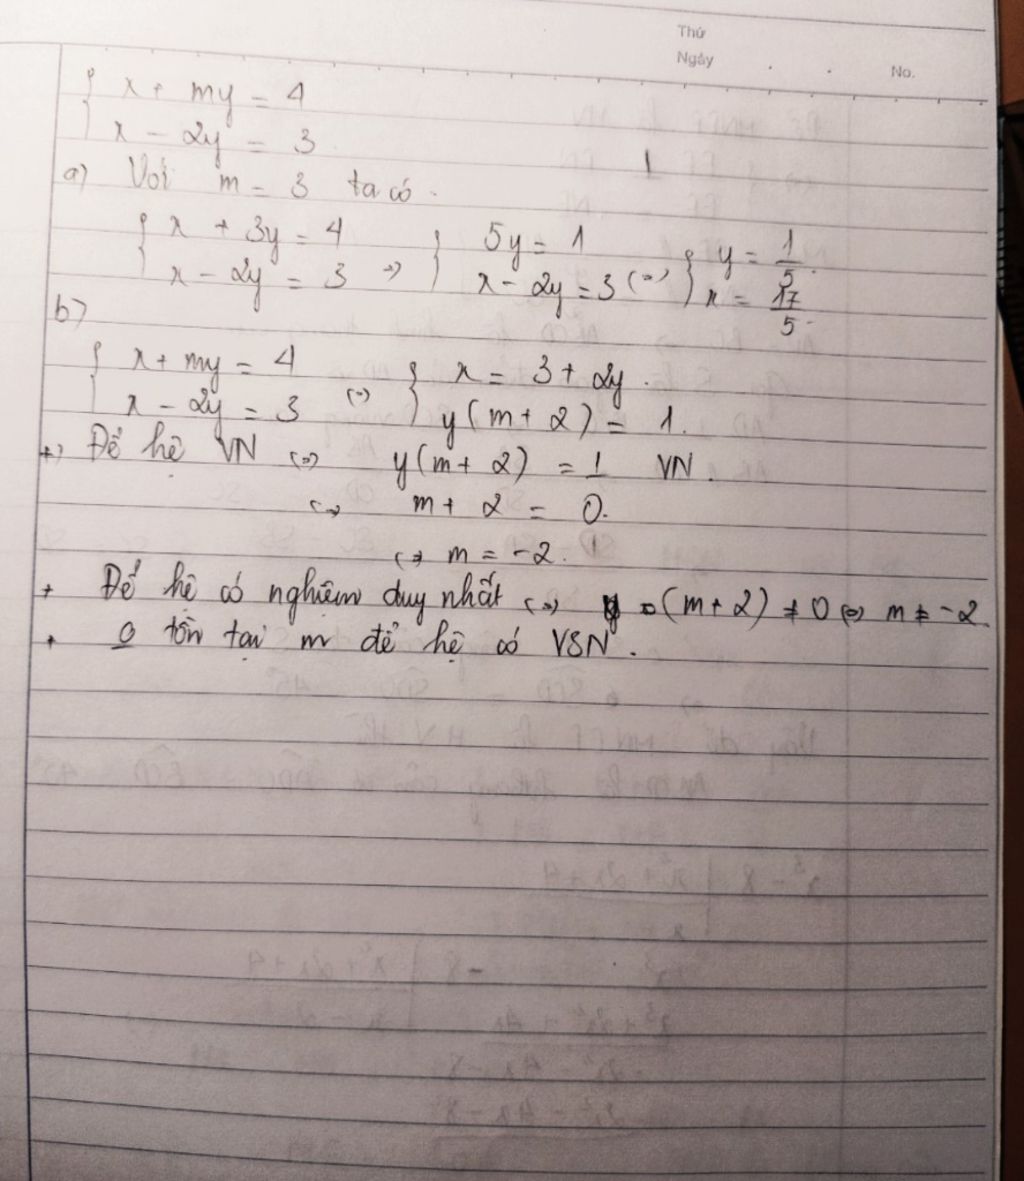 Thứ
Ngày
No.
{ x + my = 4
x - 2y = 3
a) Với m = 3 ta có.
{ x + 3y = 4 } 5y = 1 } y = 1/5.
x - 2y = 3 => x - 2y = 3 (=) x = 17/5.
b)
{ x + my = 4 } x = 3 + 2y.
x - 2y = 3 (=) y(m + 2) = 1.
+) Để hệ VN (=) y(m + 2) = 1 VN.
(=) m + 2 = 0.
(=) m = -2.
+ Để hệ có nghiệm duy nhất (=) (m + 2) ≠ 0 (=) m ≠ -2.
+ o tồn tại m để hệ có VSN.